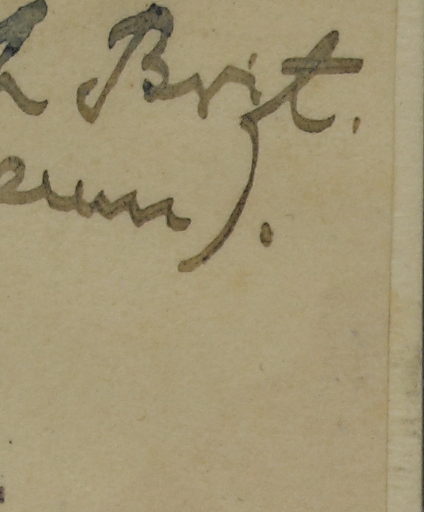 Brit.
eum).